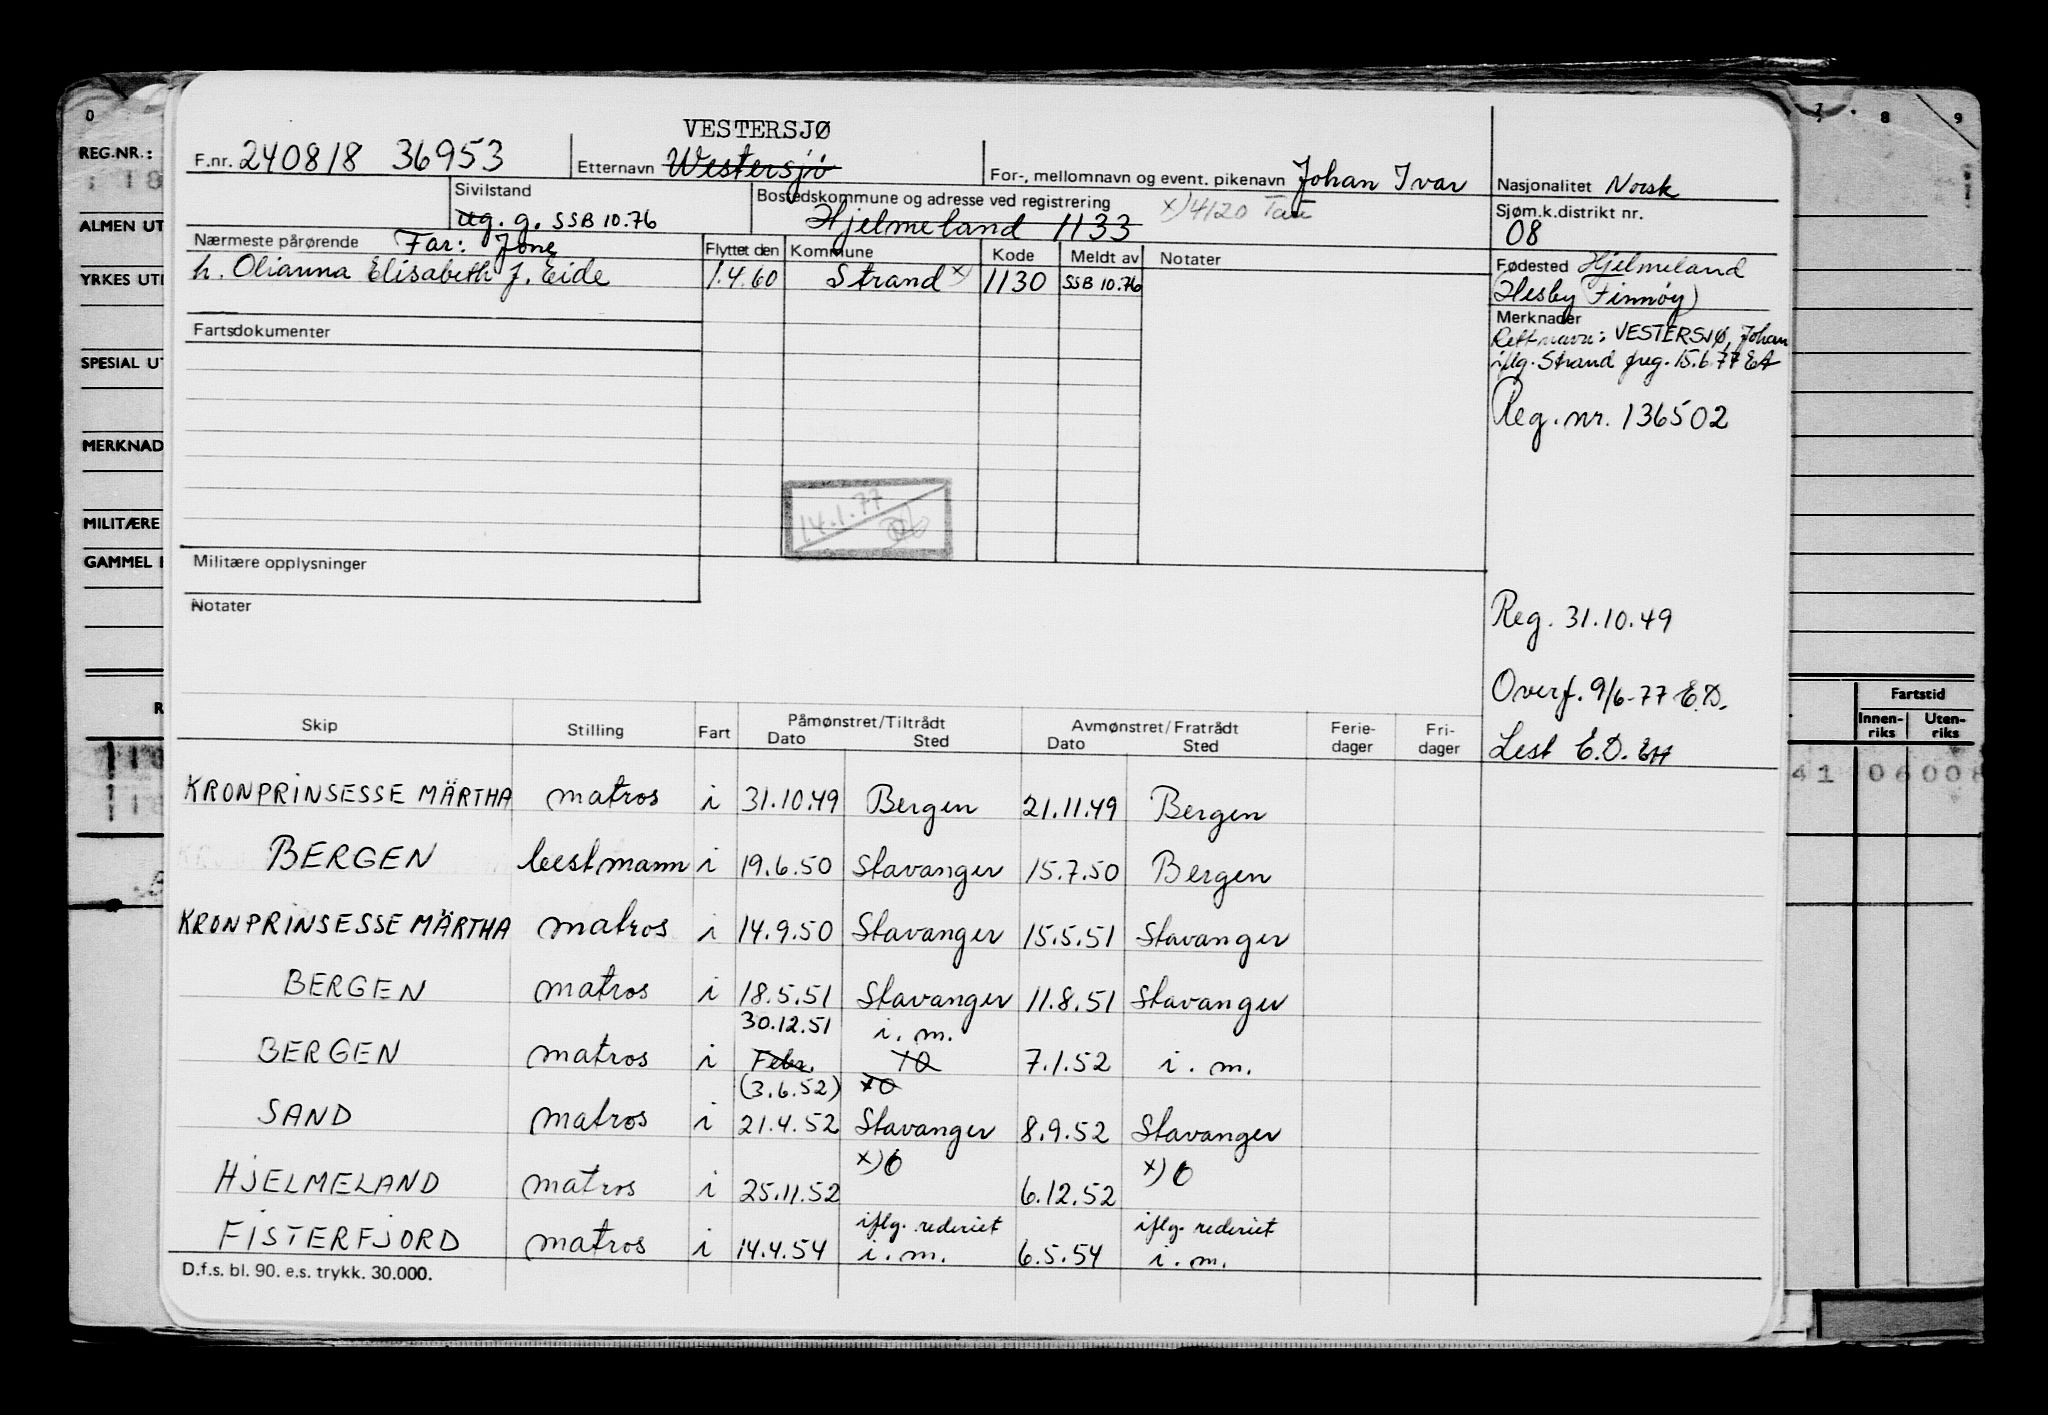 0 7 8 9
REG.NR.:
ALMEN UT
YRKES UTI
SPESIAL UT
MERKNAD
MILITÆRE
GAMMEL
VESTERSJØ
F.nr. 240818 36953 Etternavn Westersjö For-, mellomnavn og event. pikenavn Johan Ivar Nasjonalitet Norsk
Sivilstand Bostedskommune og adresse ved registrering x) 4120 Tau Sjøm.k.distrikt nr.
ug. g. SSB 10.76 Hjelmeland 1133 08
Nærmeste pårørende Far: Jone Flyttet den Kommune Kode Meldt av Notater Fødested Hjelmeland
h. Olianna Elisabeth J. Eide 1.4.60 Strand x) 1130 SSB 10.76 Hesby (Finnøy)
Merknader
Fartsdokumenter Rett navn: VESTERSJØ, Johan
iflg. Strand freg. 15.6.77 EA
Reg. nr. 136502
14.1.77
Militære opplysninger
Notater
Reg. 31.10.49
Overf. 9/6-77 E.D.
Lest E.D. EH
Skip Stilling Fart Påmønstret/Tiltrådt Avmønstret/Fratrådt Ferie- Fri-
Dato Sted Dato Sted dager dager
KRONPRINSESSE MÄRTHA matros i 31.10.49 Bergen 21.11.49 Bergen
BERGEN lestmann i 19.6.50 Stavanger 15.7.50 Bergen
KRONPRINSESSE MÄRTHA matros i 14.9.50 Stavanger 15.5.51 Stavanger
BERGEN matros i 18.5.51 Stavanger 11.8.51 Stavanger
30.12.51 i. m.
BERGEN matros i Febr. 7.1.52 i. m.
(3.6.52)
SAND matros i 21.4.52 Stavanger 8.9.52 Stavanger
x) O x) O
HJELMELAND matros i 25.11.52 6.12.52
iflg. rederiet iflg. rederiet
FISTERFJORD matros i 14.4.54 i. m. 6.5.54 i. m.
D.f.s. bl. 90. e.s. trykk. 30.000.
Fartstid
Innen- Uten-
riks riks
41 06 008